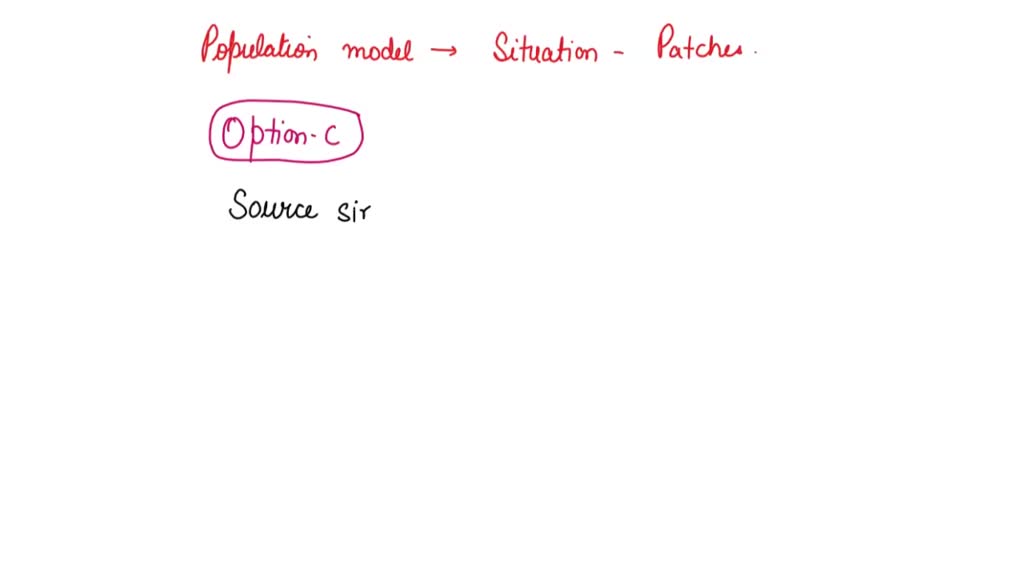 Population model → Situation - Patches.
Option-C
Source sir